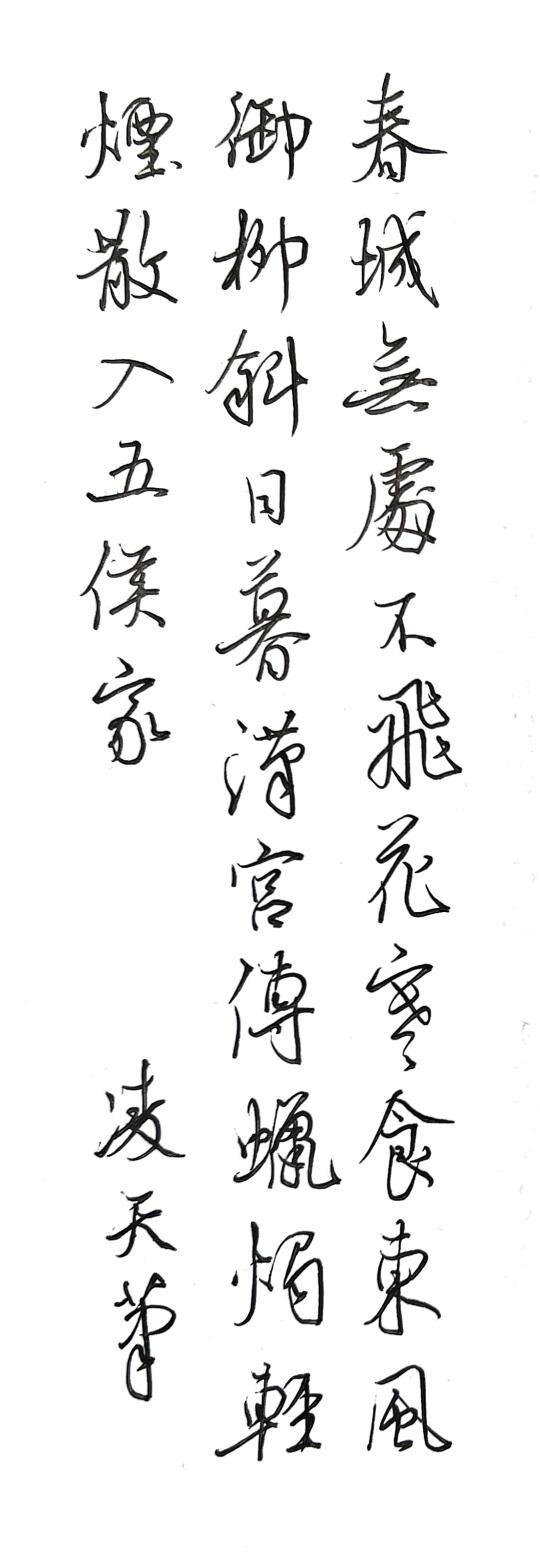 春城無處不飛花寒食東風
御柳斜日暮漢宮傳蠟燭輕
煙散入五侯家
凌天筆